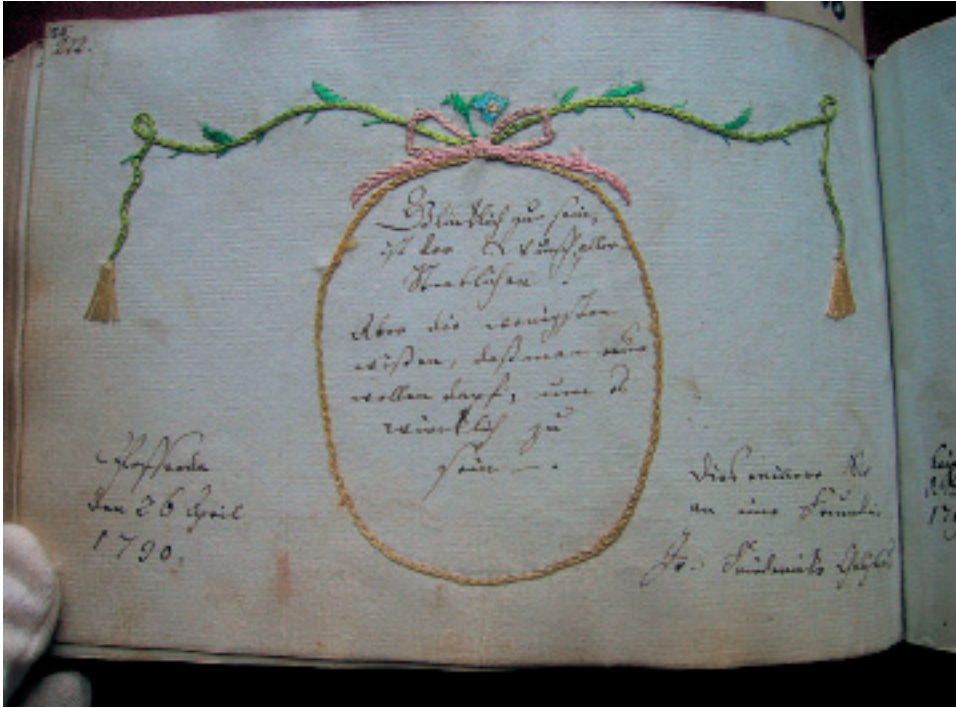 222.
Glücklich zu sein,
ist der Wunsch aller
Sterblichen.
Aber die wenigsten
wißen, daß man nur
wollen darf, um es
würklich zu
sein —.
den 26 April
1790.
Dies erinnere Sie
an eine Freundin
Friederike